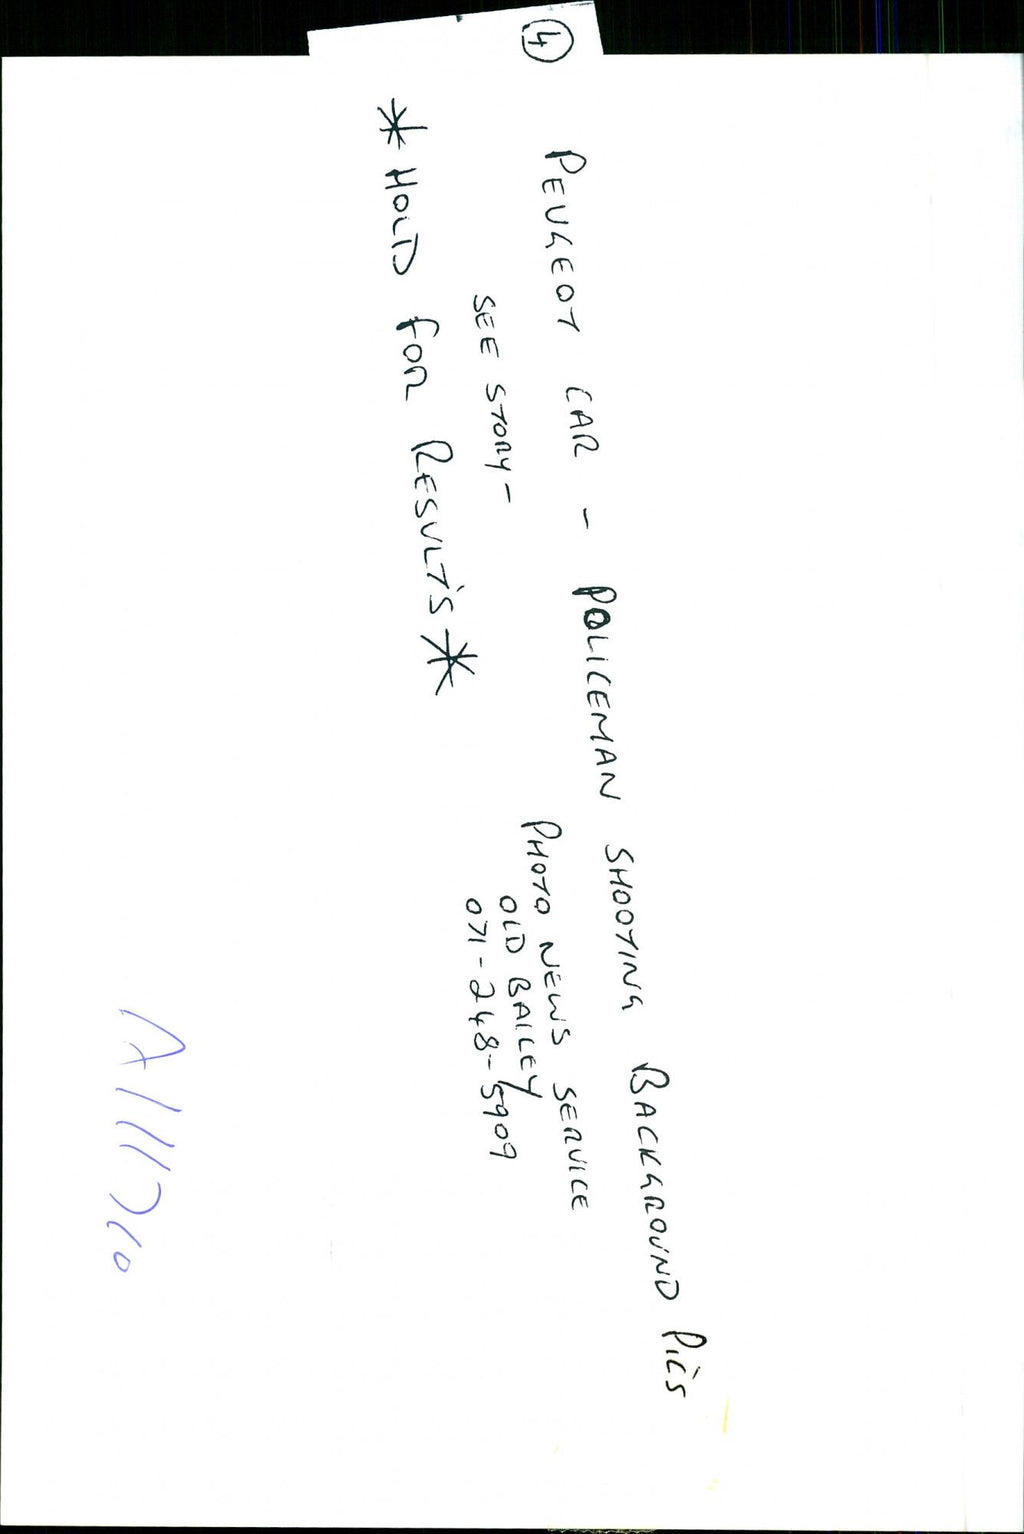 ④
PEUGEOT CAR - POLICEMAN SHOOTING BACKGROUND PIC'S
SEE STORY -
PHOTO NEWS SERVICE
OLD BAILEY
071-248-5909
* HOLD FOR RESULT'S *